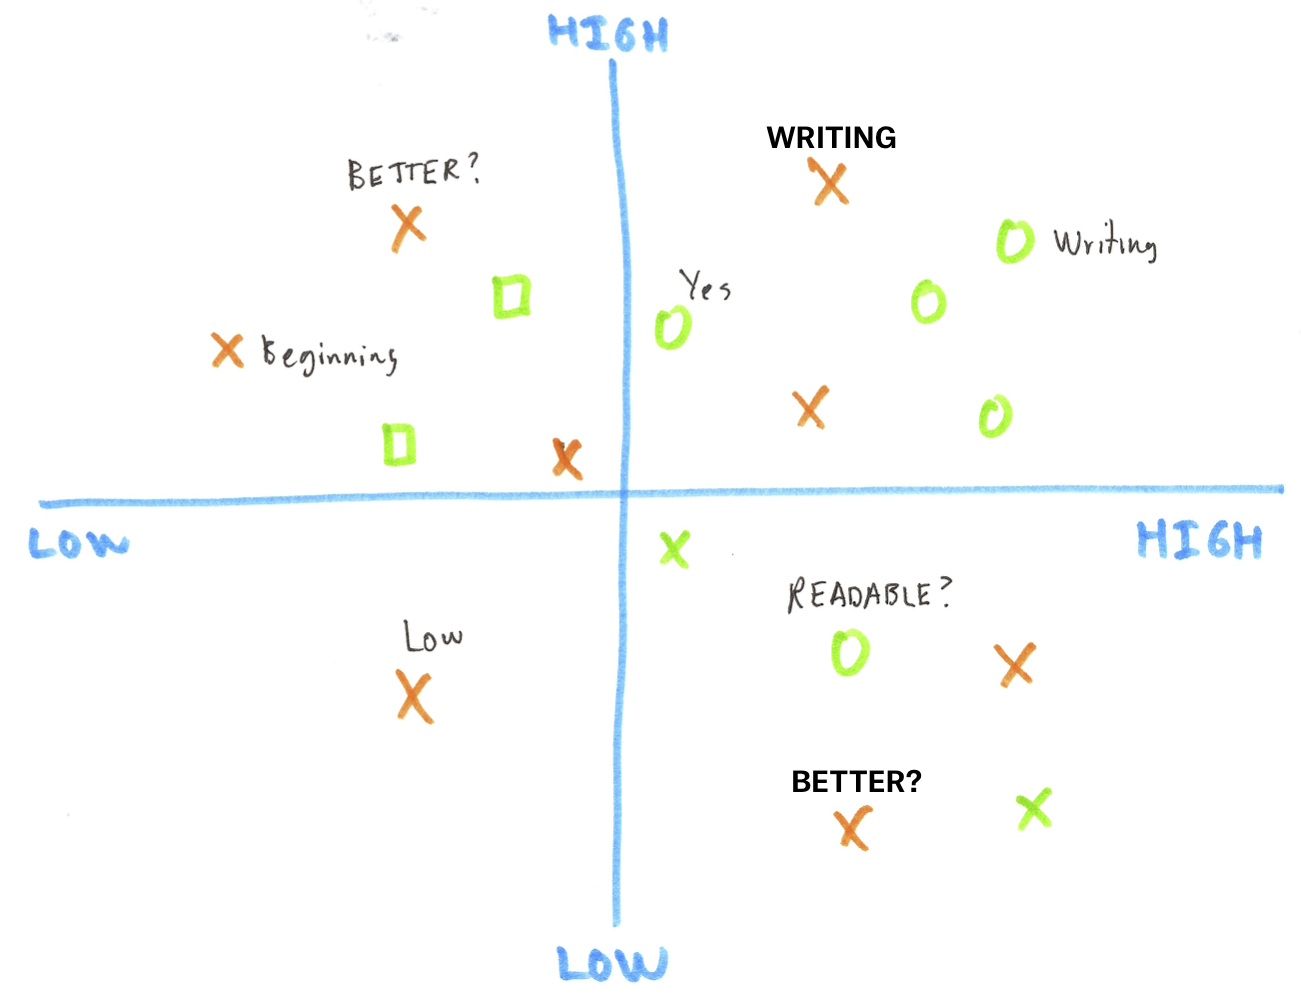 HIGH
WRITING
BETTER?
Writing
Yes
Beginning
LOW
HIGH
READABLE?
Low
BETTER?
LOW